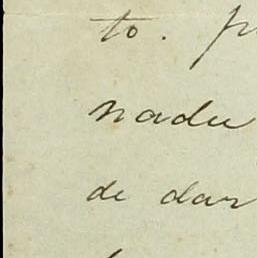 to. p
nadu
de dar